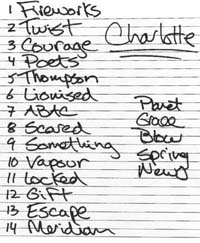 1 Fireworks
2 Twist
3 Courage
4 Poets
5 Thompson
6 Lionised
7 ABAC
8 Scared
9 Something
10 Vapour
11 Locked
12 Gift
13 Escape
14 Meridian
Charlotte
Planet
Grace
Blow
Spring
News